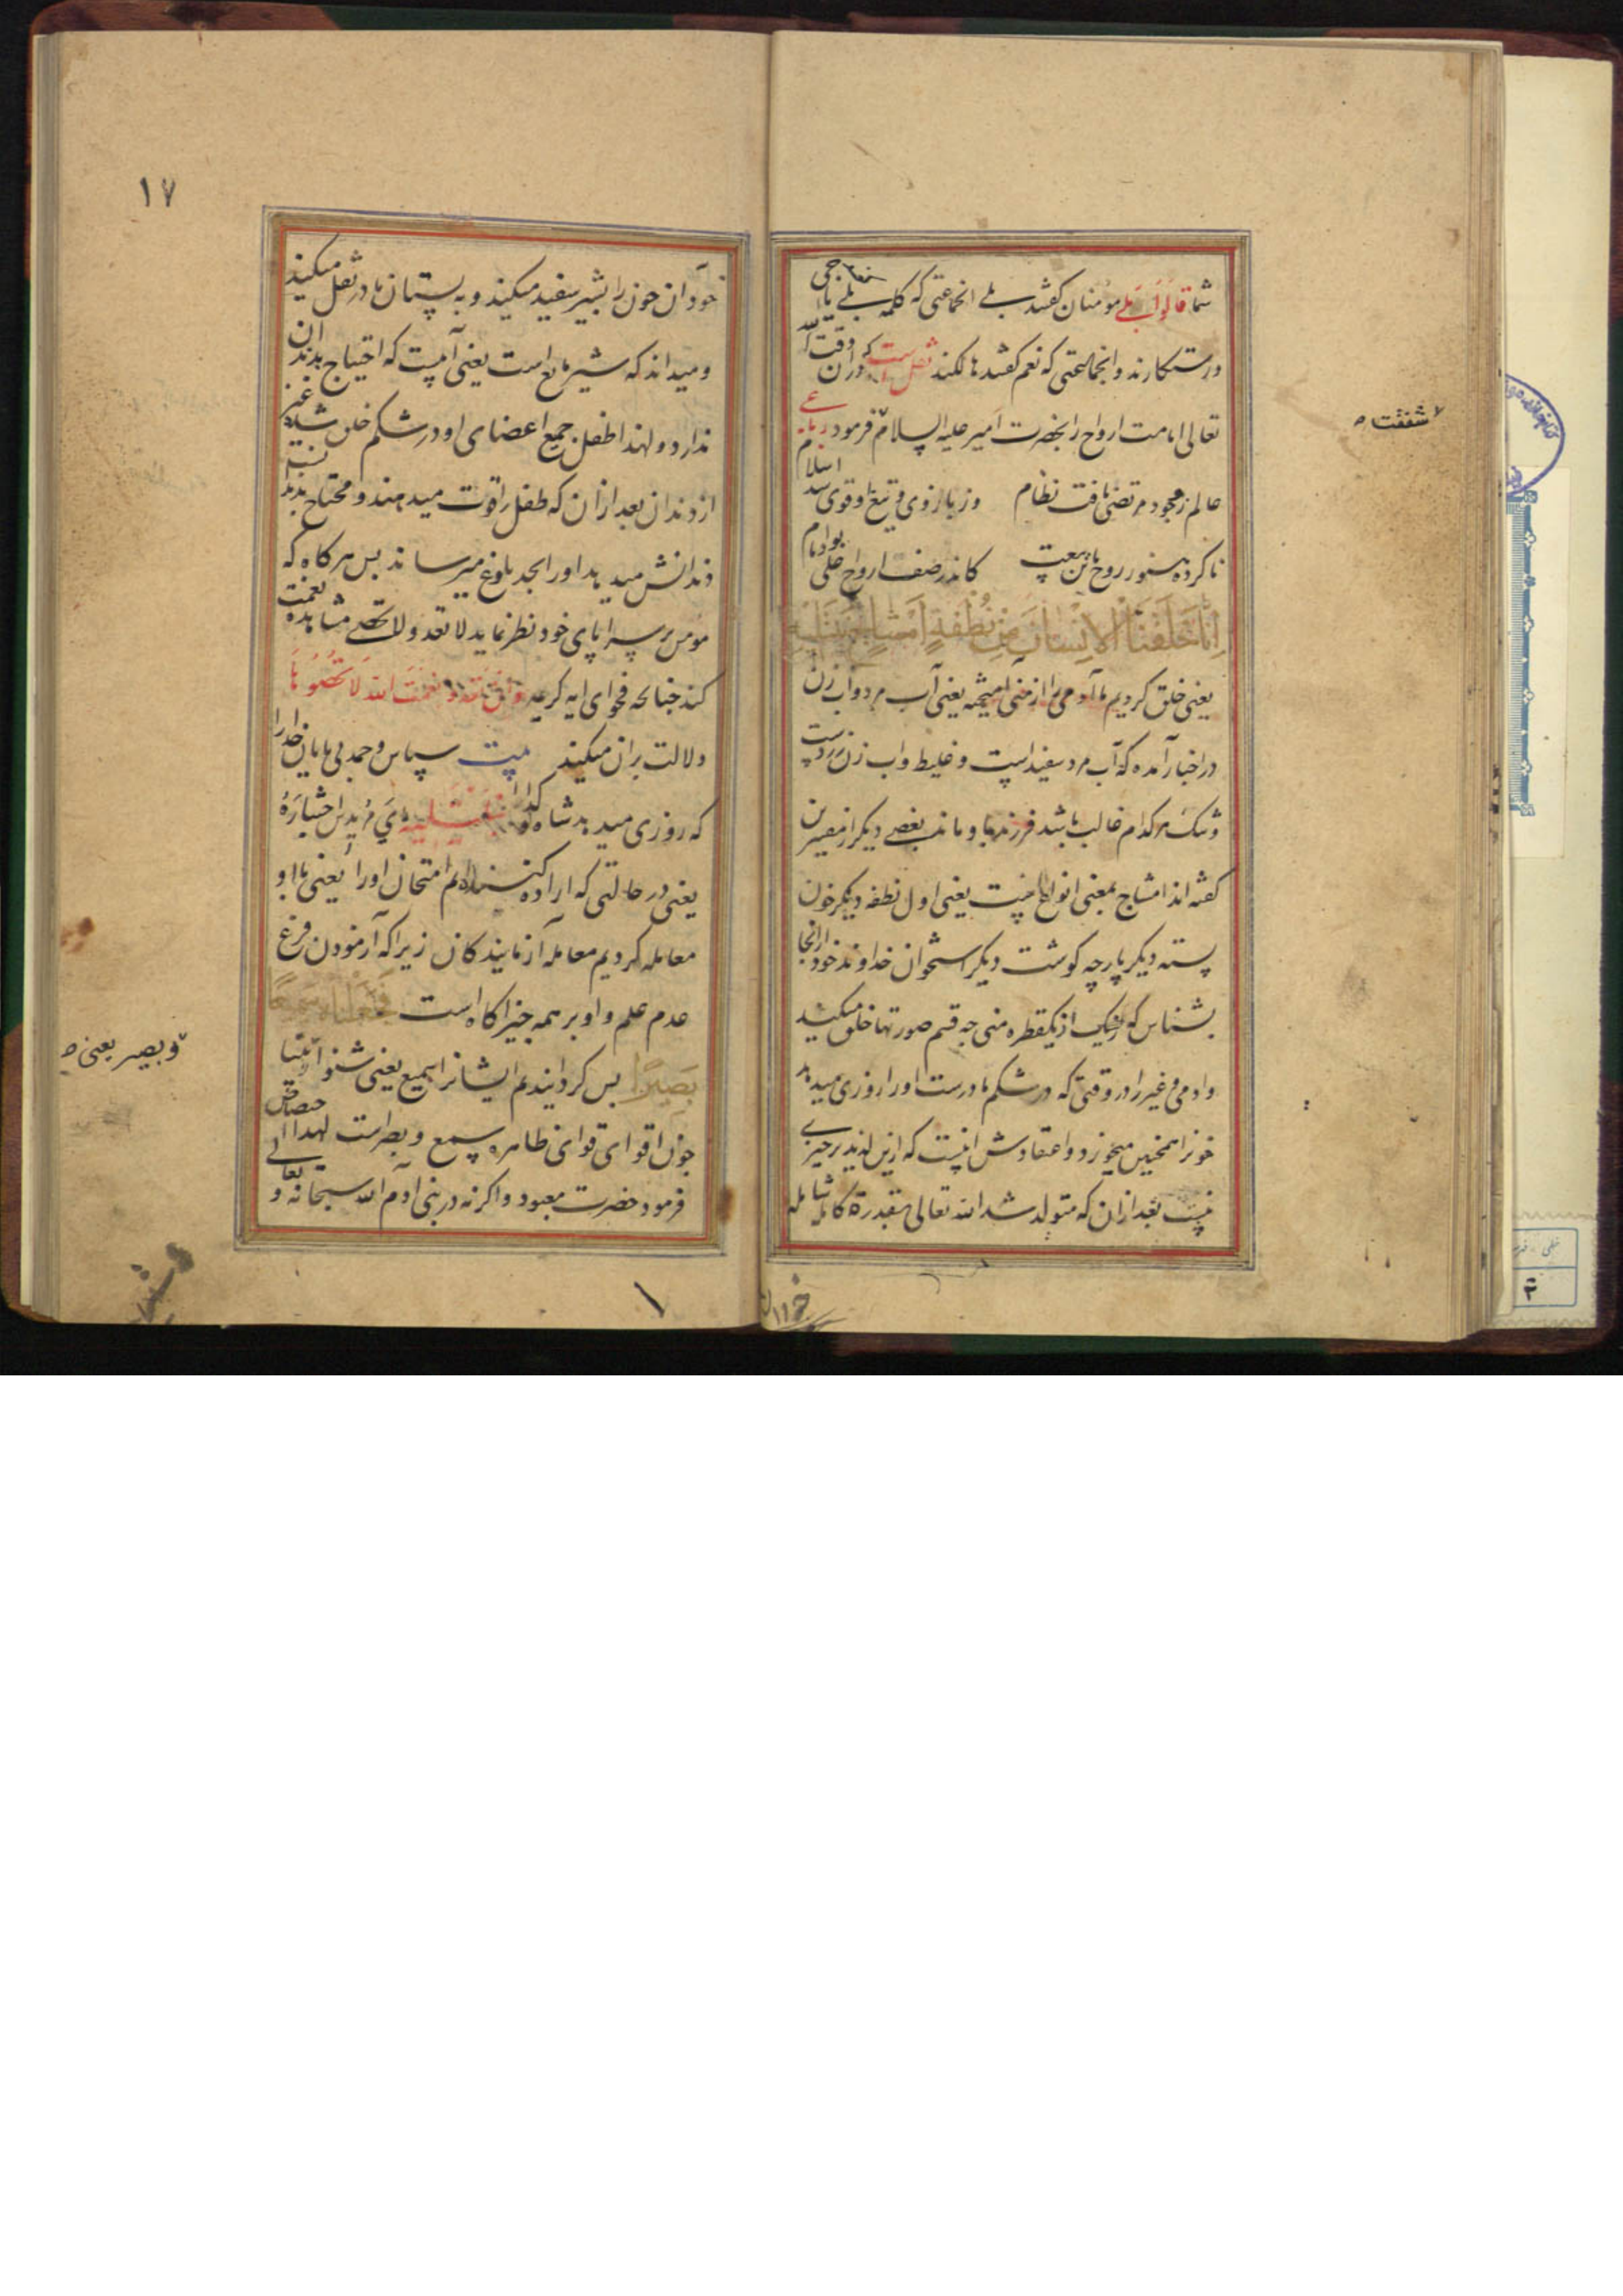 شما قالوا بلی مومنان کفتند بلی انجماعتی که کلمه بلی با
رستکارند وانجماعتی که نعم کفتند هالکند نقل است که دران وقت
تعالی امامت ارواح را بحضرت امیر علیه السلام فرمود رباعی
عالم ز وجود مرتضی یافت نظام وز بازوی و تیغ او قوی شد اسلام
ناکرده هنوز روح با تن بیعت کاندر صف ارواح علی بود امام
انا خلقنا الانسان من نطفة امشاج نبتلیه
یعنی خلق کردیم ما آدمی را از منی امیخته یعنی آب مرد و آب زن
در اخبار آمده که آب مرد سفید است و غلیظ و اب زن زردست
و تنک هر کدام غالب باشد فرزند باو ماند بعضی دیکر از مفسرین
کفته اند امشاج بمعنی انواع است یعنی اول نطفه دیکر خون
بسته دیکر پارچه کوشت دیکر استخوان خداوند خود را ازانجا
بشناس که از یکقطره منی چه قسم صورتها خلق میکند
و ادمی و غیر را در وقتی که در شکم مادرست او را روزی میدهد
خونرا همچنین میخورد و اعتقادش اینست که ازین لذیذتر چیزی
نیست بعد ازان که متولد شد الله تعالی بقدرة کامله شامله
لا شفقت ه
۱۷
خود آن خون را بشیر سفید میکند و به پستان مادر نقل میکند
و میداند که شیر مایع است یعنی آبست که احتیاج بدندان
ندارد و لهذا طفل جمیع اعضای او در شکم خلق شده غیر
از دندان بعد ازان که طفل را قوت میدهند و محتاج بدندان
دندانش میدهد و او را بحد بلوغ میرساند بس هرکاه که
مومن بر سراپای خود نظر نماید لا تعد و لا تحصی نعمت مشاهده
کند چنانچه فحوای ایه کریمه و ان تعدوا نعمت الله لا تحصوها
دلالت بران میکند بیت سپاس و حمد بی پایان خدا را
که روزی میدهد شاه و کدا را نبتلیه ای مریدین اختباره
یعنی در حالتی که اراده کننده ایم امتحان او را یعنی با او
معامله کردیم معامله آزمایندکان زیرا که آزمودن فرع
عدم علم و او بر همه چیز اکاه است فجعلناه سمیعا
بصیرا بس کردانیدیم ایشانرا سمیع یعنی شنوا بینا
چون اقوای قوای ظاهره سمع و بصر است لهذا اختصاص
فرمود حضرت معبود و اکرنه در بنی ادم الله سبحانه و تعالی
و بصیر یعنی ه